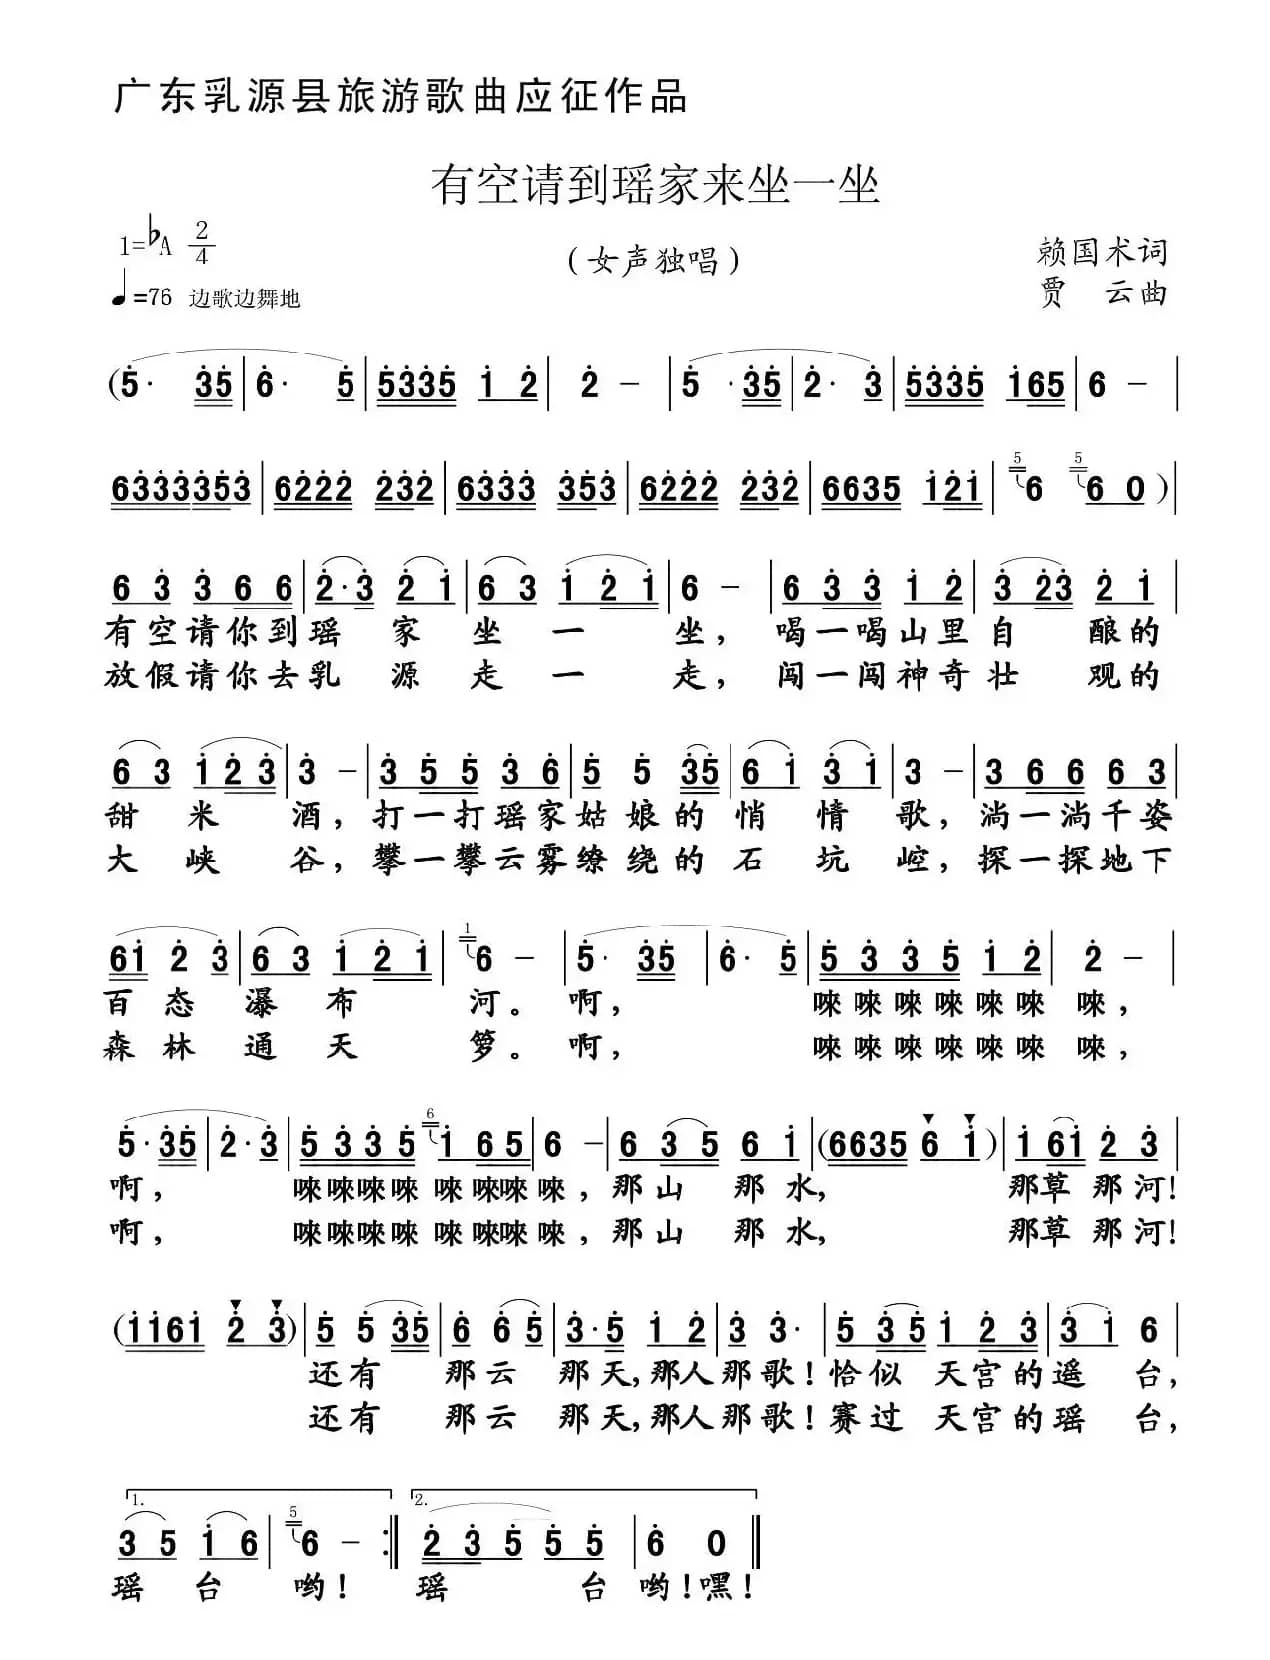 广东乳源县旅游歌曲应征作品
有空请到瑶家来坐一坐
1=♭A 2/4
(女声独唱)
赖国术词
♩=76 边歌边舞地
贾 云曲
(5· 35|6· 5|5335 1 2|2 -|5 ·35|2· 3|5335 165|6 -|
6333353|6222 232|6333 353|6222 232|6635 121|5 6 5 6 0)|
6 3 3 6 6|2·3 2 1|6 3 1 2 1|6 -|6 3 3 1 2|3 23 2 1|
有空请你到瑶 家 坐 一 坐，喝一喝山里自 酿的
放假请你去乳 源 走 一 走，闯一闯神奇壮 观的
6 3 1 2 3|3 -|3 5 5 3 6|5 5 35|6 1 3 1|3 -|3 6 6 6 3|
甜 米 酒，打一打瑶家姑娘的悄 情 歌，淌一淌千姿
大 峡 谷，攀一攀云雾缭绕的石 坑 崆，探一探地下
61 2 3|6 3 1 2 1|1 6 -|5· 35|6· 5|5 3 3 5 1 2|2 -|
百态 瀑 布 河。啊， 唻唻唻唻唻唻 唻，
森林 通 天 箩。啊， 唻唻唻唻唻唻 唻，
5·35|2·3|5 3 3 5 6 1 6 5|6 -|6 3 5 6 1|(6635 6 1)|1 61 2 3|
啊， 唻唻唻唻 唻 唻唻 唻，那山 那 水， 那草 那河！
啊， 唻唻唻唻 唻 唻唻 唻，那山 那 水， 那草 那河！
(1161 2 3)|5 5 35|6 6 5|3·5 1 2|3 3·|5 3 5 1 2 3|3 1 6|
还有 那云 那天,那人那歌！恰似 天宫的遥 台，
还有 那云 那天,那人那歌！赛过 天宫的瑶 台，
1. 2.
3 5 1 6|5 6 - :‖2 3 5 5 5|6 0‖
瑶 台 哟！ 瑶 台 哟！嘿！